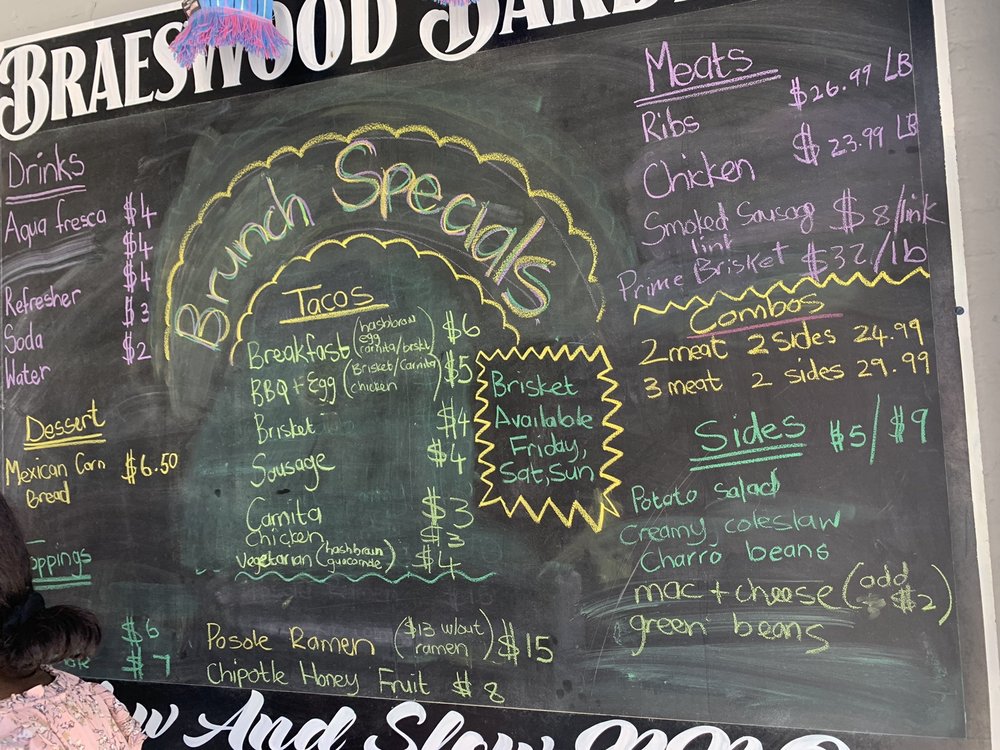 BRAESWOOD
Drinks
Aqua fresca $4
$4
Refresher $4
Soda $3
Water $2
Dessert
Mexican Corn $6.50
Bread
oppings
$6
$7
Brunch Specials
Tacos
Breakfast (hashbrown egg carnita/brskt) $6
BBQ + Egg (Brisket/Carnita chicken) $5
Brisket $4
Sausage $4
Carnita $3
Chicken $3
Vegetarian (hashbrown guacamole) $4
Posole Ramen ($13 w/out ramen) $15
Chipotle Honey Fruit $8
Brisket
Available
Friday,
Sat, Sun
Meats
Ribs $26.99 LB
Chicken $23.99 LB
Smoked Sausag $8/link
link
Prime Brisket $32/lb
Combos
2 meat 2 sides 24.99
3 meat 2 sides 29.99
Sides $5/$9
Potato Salad
Creamy, coleslaw
Charro beans
mac + cheese (add $2)
green beans
And Slow